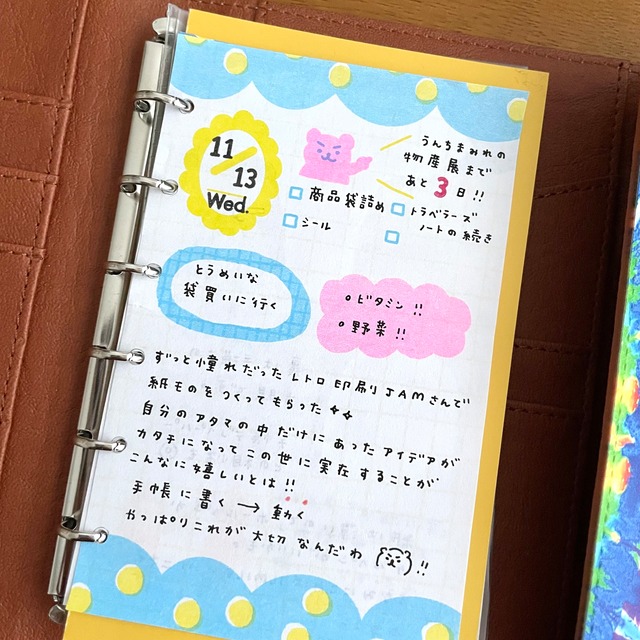 11
13
Wed.
うんちまみれの
物産展まで
あと3日!!
商品袋詰め
シール
トラベラーズ
ノートの続き
とうめいな
袋買いに行く
ビタミン!!
野菜!!
ずっと憧れだったレトロ印刷JAMさんで
紙ものをつくってもらった
自分のアタマの中だけにあったアイデアが
カタチになってこの世に実在することが
こんなに嬉しいとは!!
手帳に書く→動く
やっぱりこれが大切なんだわ!!